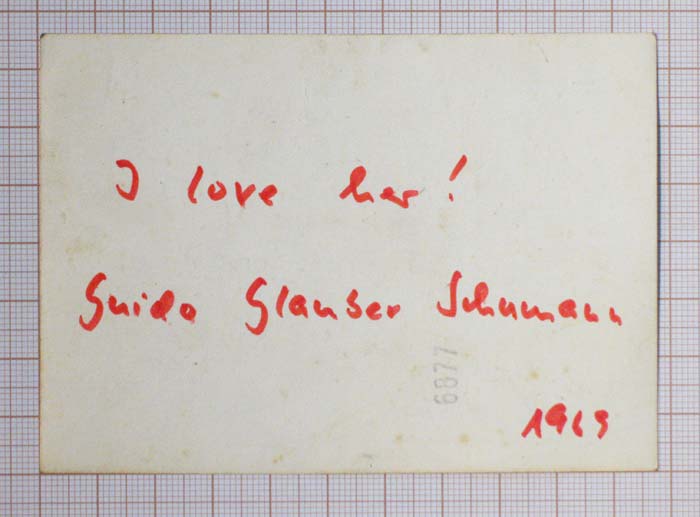 I love her!
Guido Glauser Schumann
6877
1969